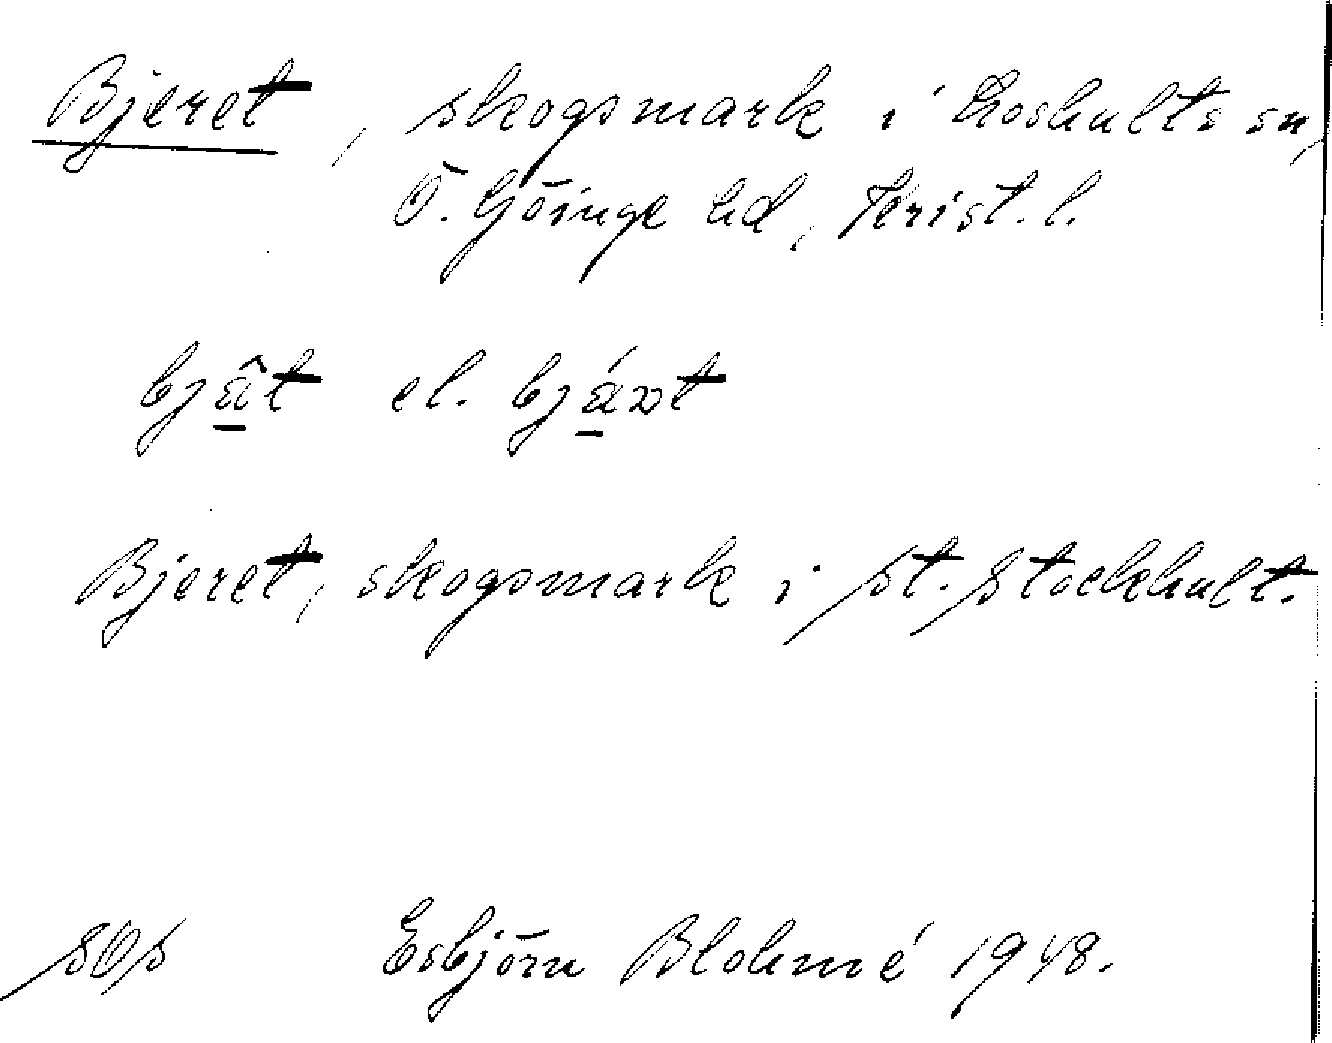 Bjeret, skogsmark i Loshults sn,
Ö. Göinge hd, Krist. l.
bjât el. bját
Bjeret, skogsmark i st. Stockhult.
SOS Esbjörn Blohmé 1948.